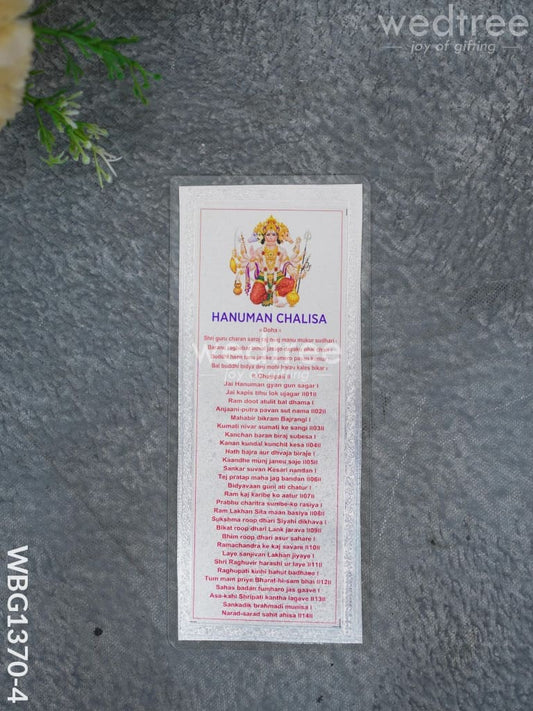 wedtree
joy of gifting
HANUMAN CHALISA
Doha
Shri guru charan saroj raj nij manu mukur sudhari
Bal buddhi bidya deu mohi
Chaupaii
Jai Hanuman gyan gun sagar I
Jai kapis tihu lok ujagar II01II
Ram doot atulit bal dhama I
Anjaani-putra pavan sut nama II02II
Mahabir bikram Bajrangi I
Kumati nivar sumati ke sangi II03II
Kanchan baran biraj subesa I
Kanan kundal kunchit kesa II04II
Hath bajra aur dhvaja biraje I
Kaandhe munj janeu saje II05II
Sankar suvan Kesari nandan I
Tej pratap maha jag bandan II06II
Bidyavaan guni ati chatur I
Ram kaj karibe ko aatur II07II
Prabhu charitra sunibe-ko rasiya I
Ram Lakhan Sita maan basiya II08II
Sukshma roop dhari Siyahi dikhava I
Bikat roop dhari Lank jarava II09II
Bhim roop dhari asur sahare I
Ramachandra ke kaj savare II10II
Laye sanjivan Lakhan jiyaye I
Shri Raghuvir harashi ur laye II11II
Raghupati kinhi bahut badhaee I
Tum mam priye Bharat-hi-sam bhai II12II
Sahas badan tumharo jas gaave I
Asa-kahi Shripati kantha lagave II13II
Sankadik brahmadi munisa I
Narad-sarad sahit ahisa II14II
WBG1370-4